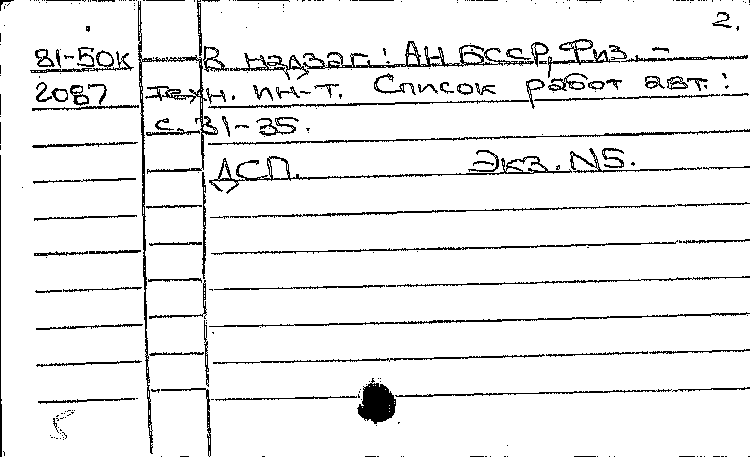 2.
81-50к В надзаг.: АН БССР, Физ.-
2087 техн. ин-т. Список работ авт.:
с. 31-35.
ДСП. Экз. N5.
5